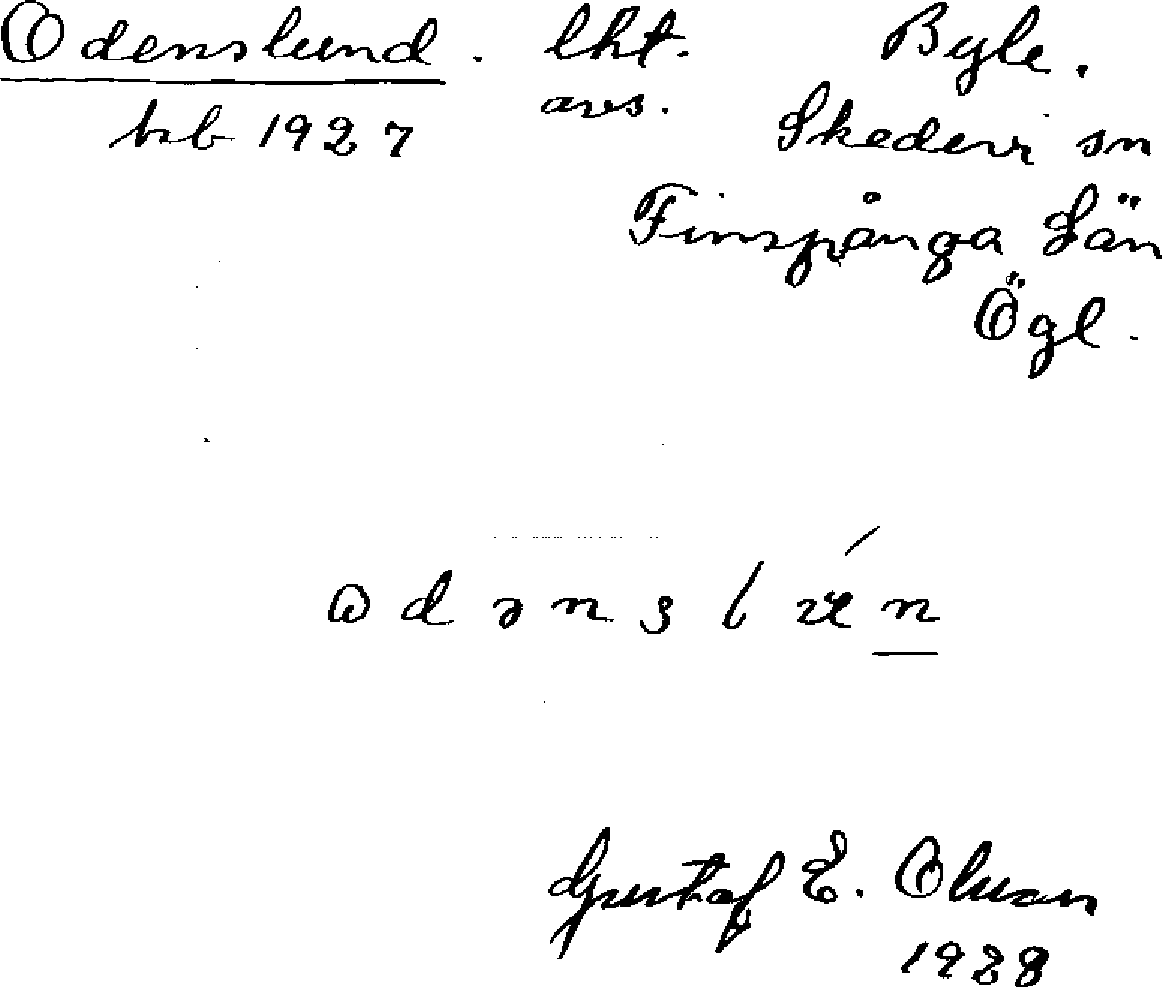 Odenslund. lht. Byle.
hrb 1927 avs. Skedevi sn
Finspånga Län
Ögl.
odənslun
Gustaf E. Olsson
1928